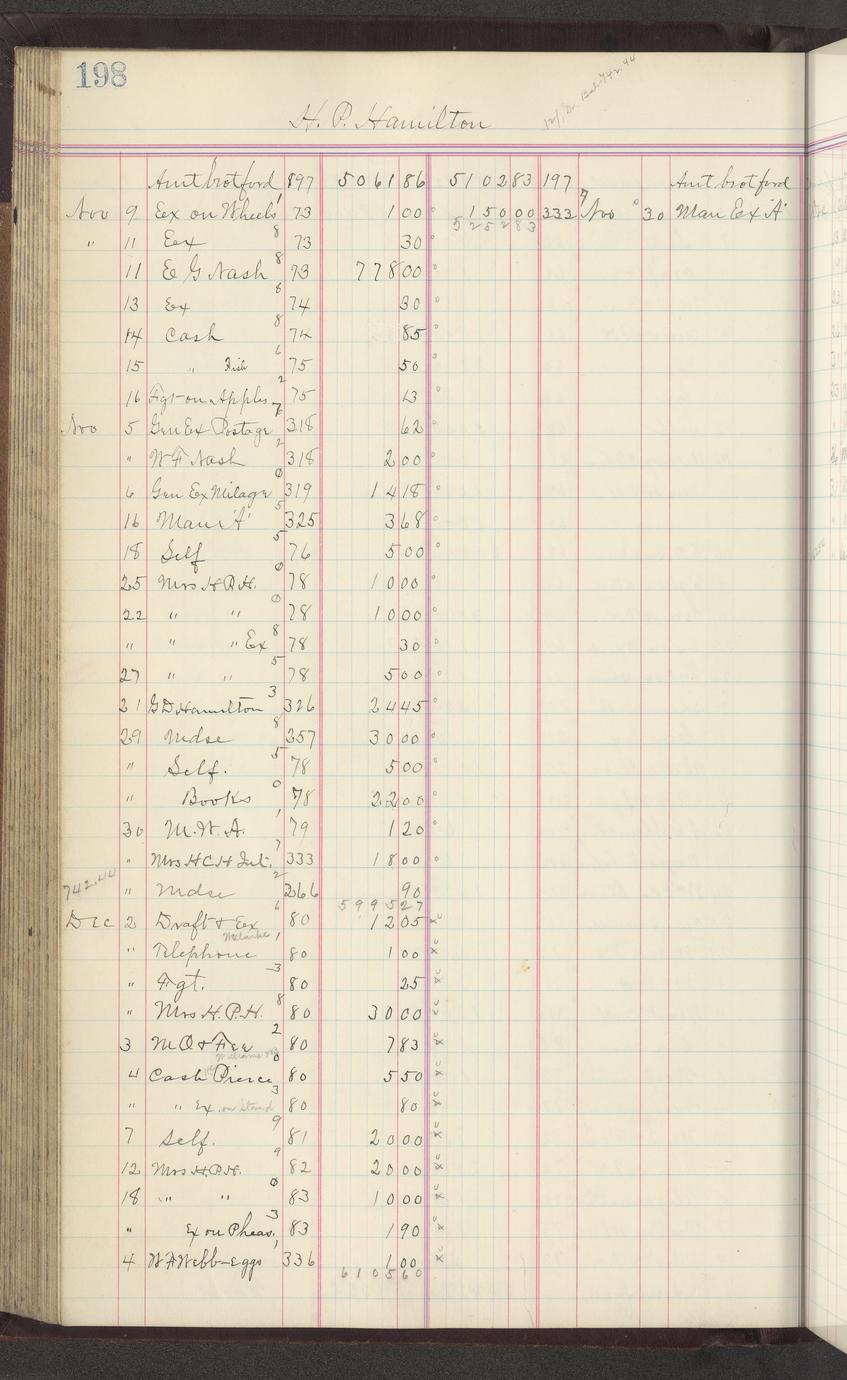 198
12/1 Dr Bal 742.44
H. P. Hamilton
Amt brot ford 197 5061 86 5102 83 197 Amt brot ford
Nov 9 Eex on Wheels 1 73 1 00 150 00 333 9 Nov 30 Man Ex "A"
5252 83
" 11 Eex 8 73 30
11 E G Nash 8 73 778 00
13 Ex 6 74 30
14 Cash 8 74 85
15 " Fish 6 75 50
16 Fgt on Apples 2 75 13
Nov 5 Gen Ex Postage 7 318 62
" W F Nash 2 318 2 00
6 Gen Ex Milage 0 319 14 18
16 Man "A" 5 325 3 68
18 Self 5 76 5 00
25 Mrs H.P.H. 0 78 10 00
22 " " 0 78 10 00
" " " Ex 8 78 30
27 " " 5 78 5 00
21 G D Hamilton 3 326 24 45
29 Mdse 8 257 30 00
" Self. 5 78 5 00
" Books 0 78 22 00
30 M. W. A. 1 79 1 20
" Mrs H C H Int. 7 333 18 00
742.44 " Mdse 2 266 90
5995 27
Dec 2 Draft & Ex 6 80 12 05
" Telephone 1 80 1 00
" Fgt. 3 80 25
" Mrs H. P. H. 8 80 30 00
3 M O & Fee 2 80 7 83
4 Cash Pierce 0 80 5 50
" " Ex. on Stand 3 80 80
7 Self. 9 81 20 00
12 Mrs H.P.H. 9 82 20 00
18 " " 0 83 10 00
" Ex on Pheas. 3 83 1 90
4 W F Webb - Eggs 1 336 1 00
6105 60